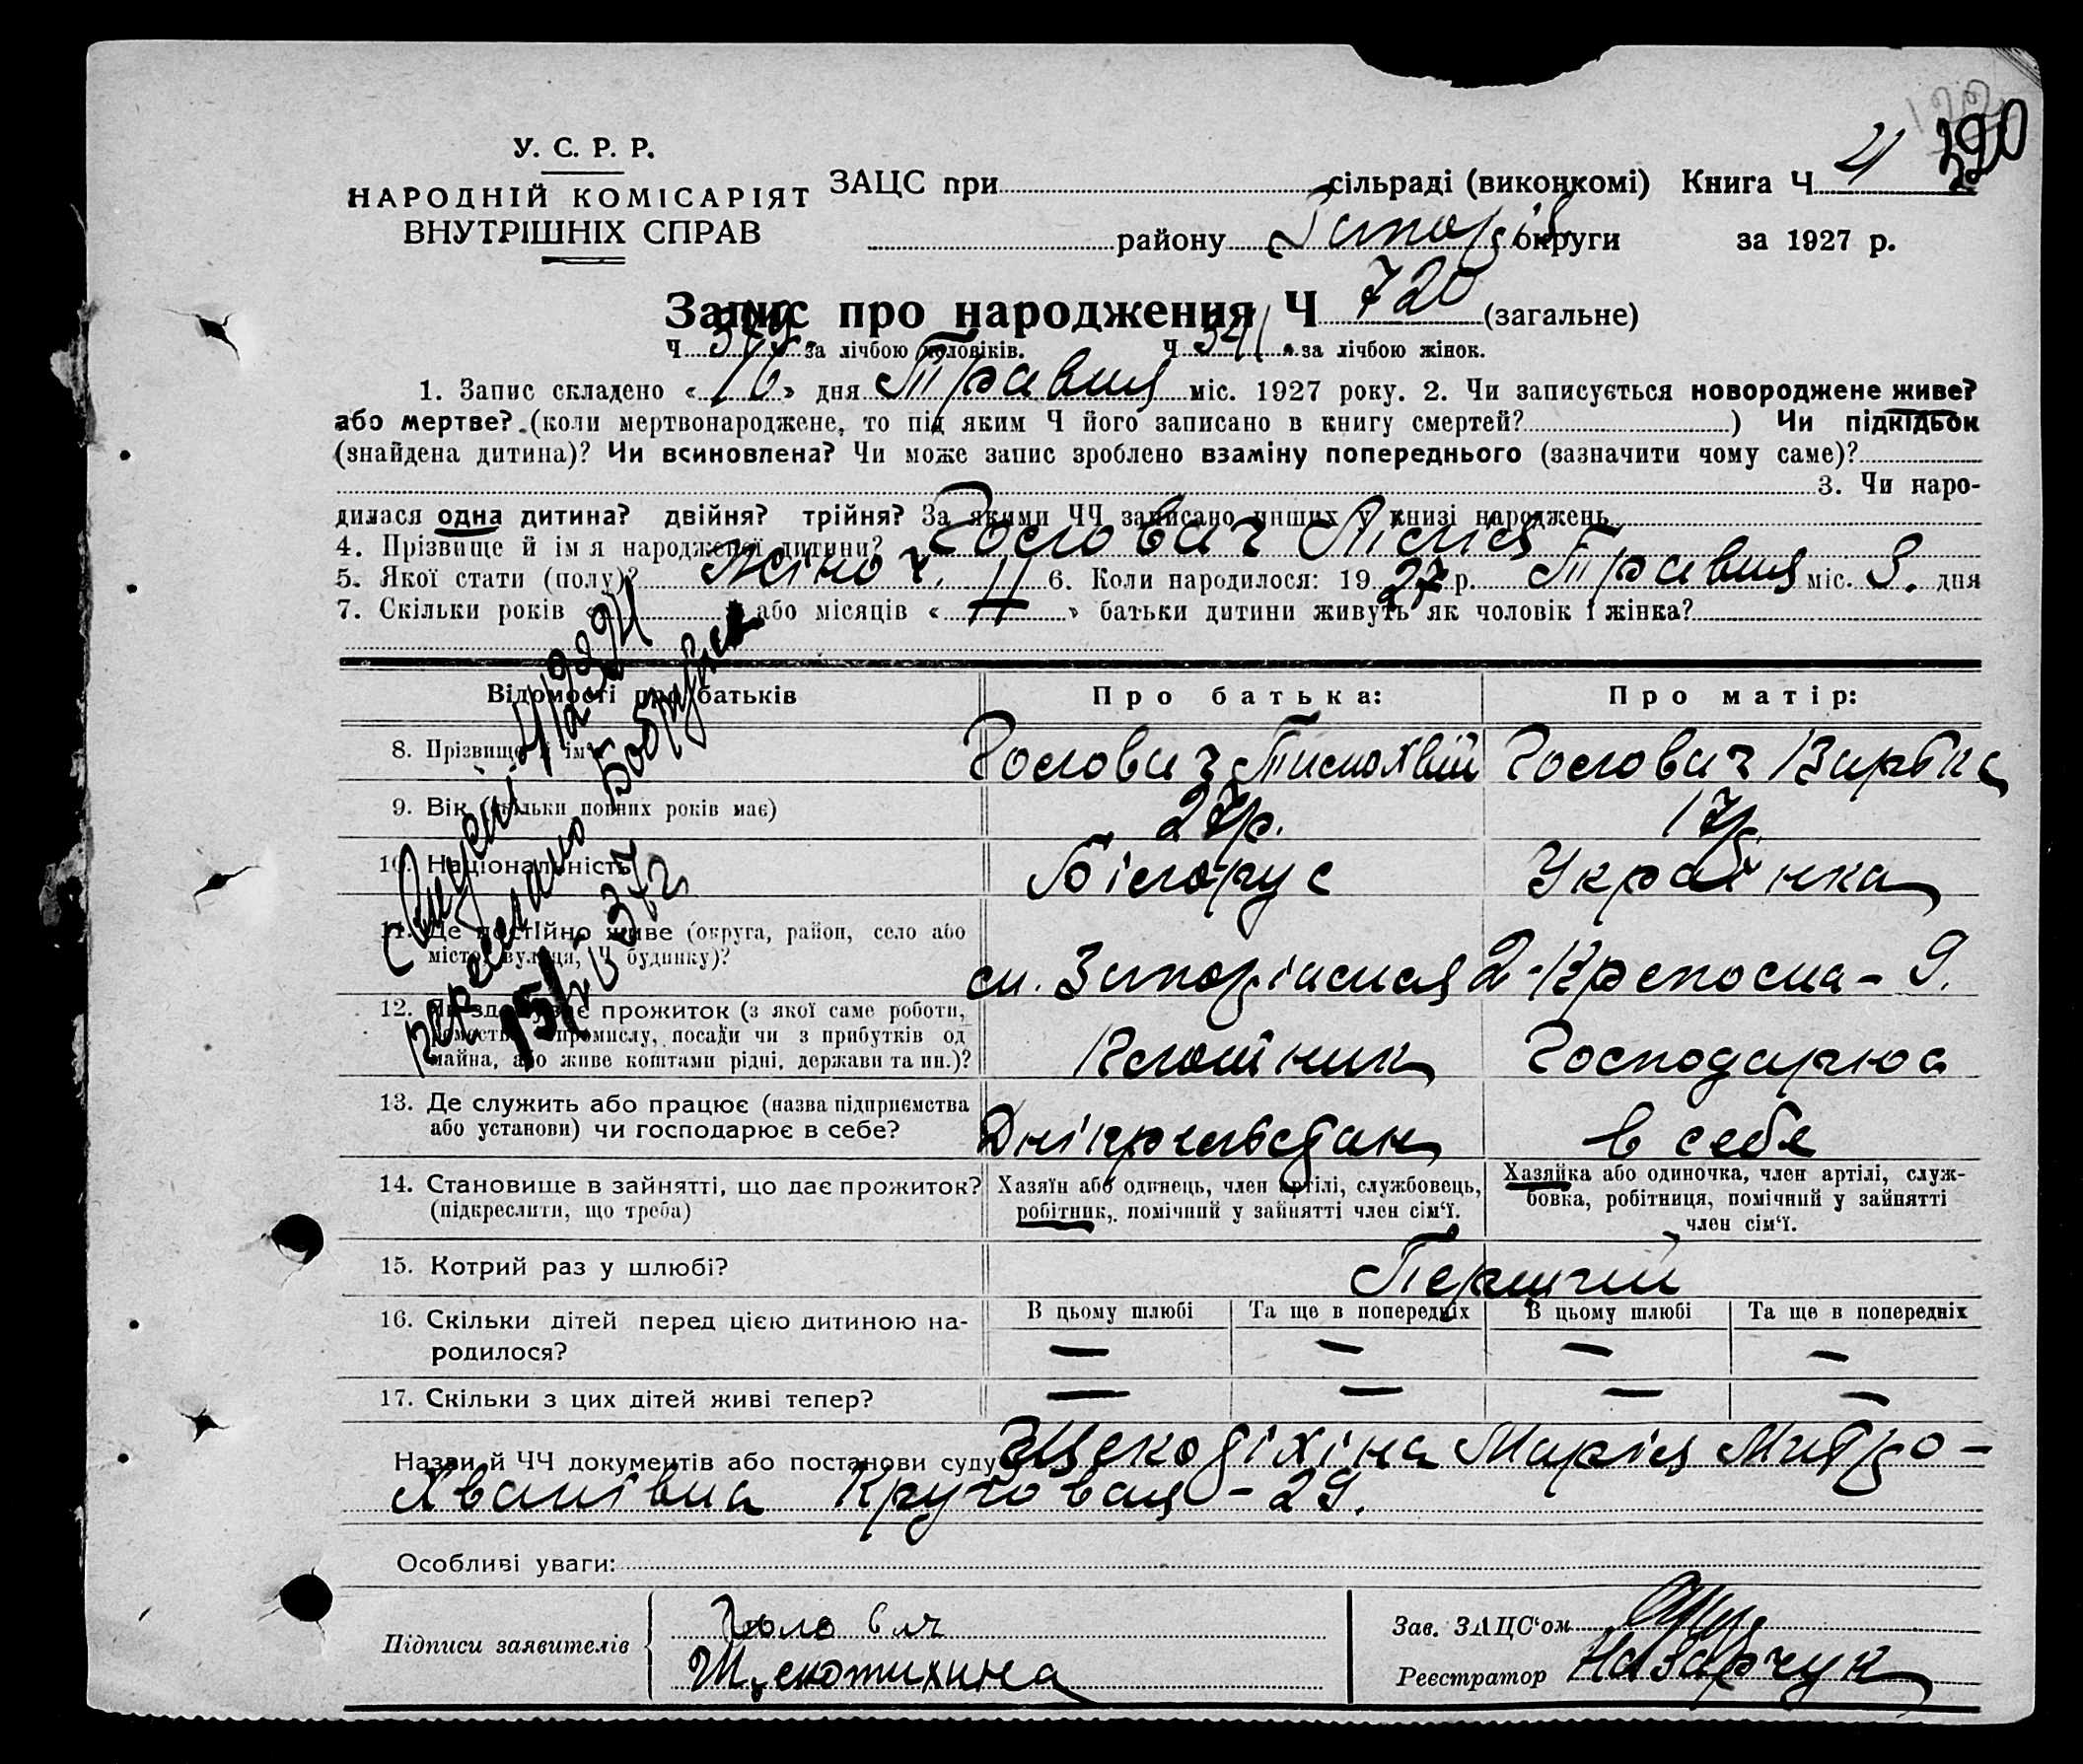 390
У. С. Р. Р.
НАРОДНІЙ КОМІСАРІЯТ
ВНУТРІШНІХ СПРАВ
ЗАЦС при сільраді (виконкомі) Книга Ч 4
району Запоріз округи за 1927 р.
Запис про народження Ч 720 (загальне)
Ч 379 за лічбою чоловіків. Ч 341 за лічбою жінок.
1. Запис складено «16» дня Травня міс. 1927 року. 2. Чи записується новороджене живе?
або мертве? (коли мертвонароджене, то під яким Ч його записано в книгу смертей? ) Чи підкідьок
(знайдена дитина)? Чи всиновлена? Чи може запис зроблено взаміну попереднього (зазначити чому саме)?
3. Чи наро-
дилася одна дитина? двійня? трійня? За якими ЧЧ записано инших у книзі народжень
4. Прізвище й ім я народженої дитини? Головач Лілія
5. Якої стати (полу)? Жіноч. 6. Коли народилося: 1927 р. Травня міс. 3. дня
7. Скільки років « » або місяців « 11 » батьки дитини живуть як чоловік і жінка?
Відомості про батьків Про батька: Про матір:
8. Прізвище й ім'я Головач Тимохвій Головач Варька
9. Вік (скільки повних років має) 27р. 17р.
10. Національність Білорус Українка
11. Де постійно живе (округа, район, село або
місто, вулиця, Ч будинку)? 9.
12. Як здобуває прожиток (з якої саме роботи,
ремества, промислу, посади чи з прибутків од
майна, або живе коштами рідні, держави та ин.)? Клотник Господарює
13. Де служить або працює (назва підприємства
або установи) чи господарює в себе? Дніпрельстан в себе
14. Становище в зайнятті, що дає прожиток?
(підкреслити, що треба)
Хазяїн або одинець, член артілі, службовець,
робітник, помічний у зайнятті член сім'ї.
Хазяйка або одиночка, член артілі, служ-
бовка, робітниця, помічний у зайнятті
член сім'ї.
15. Котрий раз у шлюбі? Перший
В цьому шлюбі Та ще в попередніх В цьому шлюбі Та ще в попередніх
16. Скільки дітей перед цією дитиною на-
родилося? — — — —
17. Скільки з цих дітей живі тепер? — — — —
Назви й ЧЧ документів або постанови суду Щекодіхіна Марія Митро-
хванівна Крутовая - 29.
Особливі уваги:
Підписи заявителів Головач
Щекотихина
Зав. ЗАЦС'ом
Реєстратор Назарчук